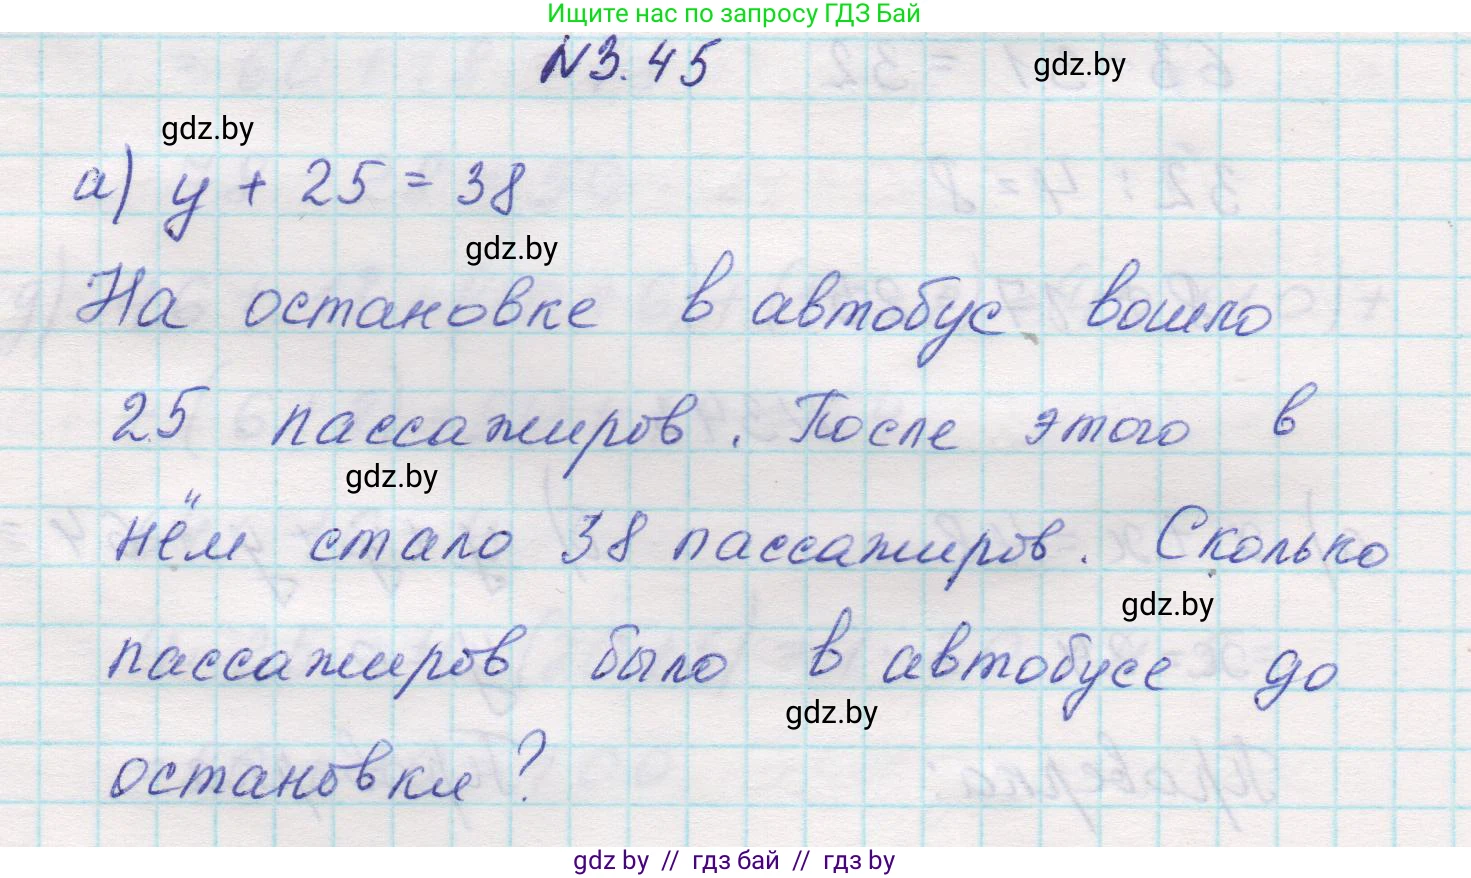 Ищите нас по запросу ГДЗ Бай
N3.45
gdz.by
gdz.by
а) y + 25 = 38
gdz.by
На остановке в автобус вошло
25 пассажиров. После этого в
gdz.by
нём стало 38 пассажиров. Сколько
gdz.by
пассажиров было в автобусе до
gdz.by
остановки?
gdz by // гдз бай // гдз by